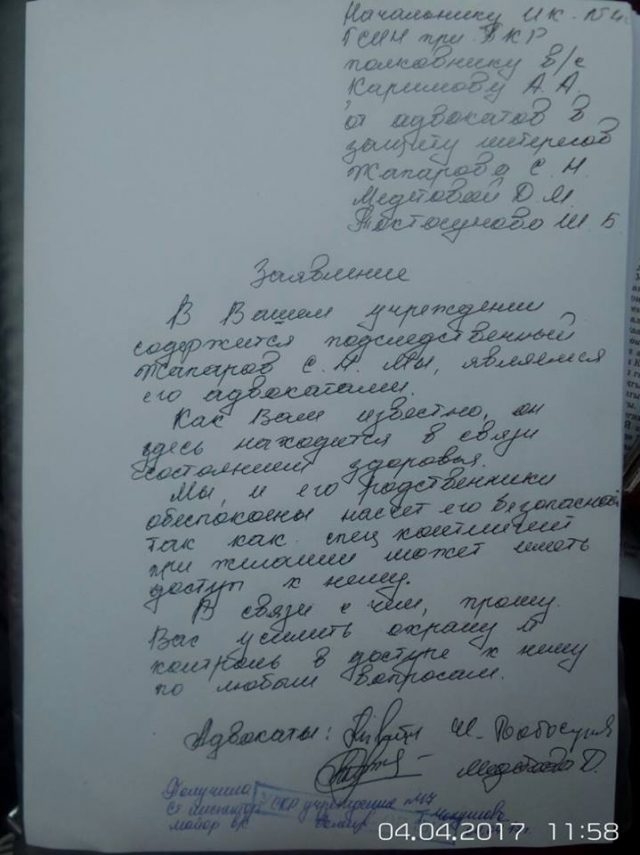 Начальнику ИК-№4
ГСИН при ПКР
полковнику в/с
Каримову А.А.
от адвокатов в
защиту интересов
Жапарова С.Н.
Медетовой Д.М.
Токтосунова Ш.Б
Заявление
В Вашем учреждении
содержится подследственный
Жапаров С.Н. Мы, являемся
его адвокатами.
Как Вам известно, он
здесь находится в связи
состоянием здоровья.
Мы, и его родственники
обеспокоены насчет его безопасности
так как спец контингент
при желании может иметь
доступ к нему.
В связи с чем, прошу
Вас усилить охрану и
контроль в доступе к нему
по любым вопросам.
Адвокаты: Ш.
Медетова Д.
Получила
Ст инспектор СКР учреждения №47
майор в/с
04.04.2017 11:58